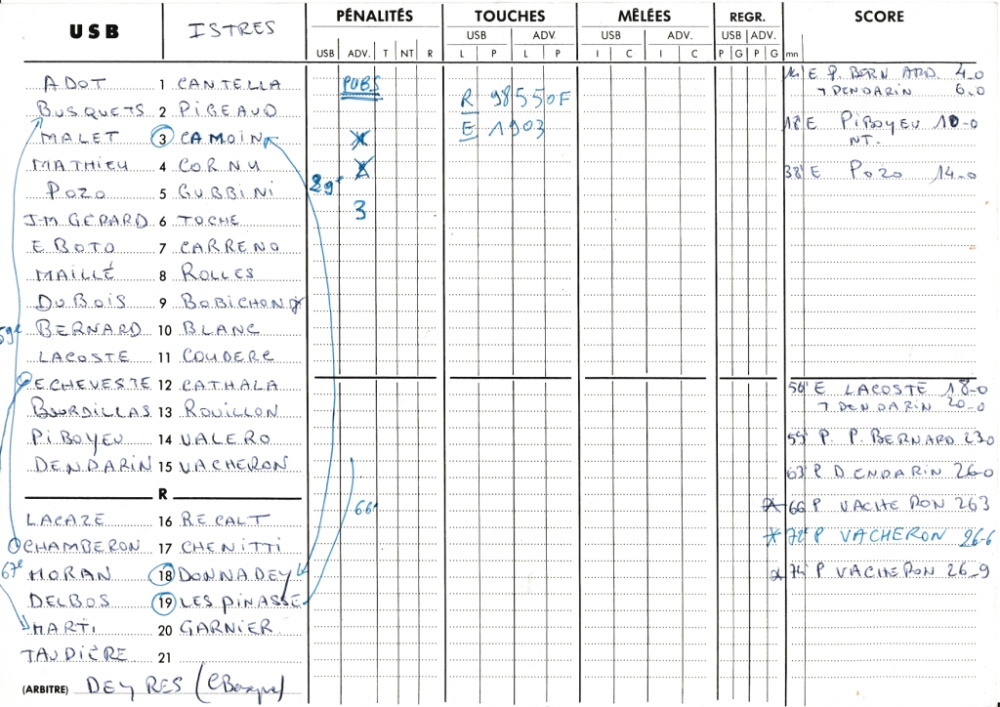 USB ISTRES PÉNALITÉS TOUCHES MÊLÉES REGR. SCORE
USB ADV. USB ADV. USB ADV.
USB ADV. T NT R L P L P I C I C P G P G mn
ADOT 1 CANTELLA
BUSQUETS 2 PIGEAUD
MALET 3 CAMOIN
MATHIEU 4 CORNU
POZO 5 GUBBINI
J-M GÉRARD 6 TOCHE
E BOTO 7 CARRENO
MAILLÉ 8 ROLLES
DUBOIS 9 BOBICHON
BERNARD 10 BLANC
LACOSTE 11 COUDERC
ECHEVESTE 12 CATHALA
BOURDILLAS 13 ROUILLON
PIBOYEU 14 VALERO
DENDARIN 15 VACHERON
R
LACAZE 16 RECALT
CHAMBERON 17 CHENITTI
MORAN 18 DONNADEY
DELBOS 19 LESPINASSE
MARTI 20 GARNIER
TAUDIÈRE 21
(ARBITRE) DEYRES
59e
67e
PUBS
3
66'
R 98550F
E 1903
14' E P. BERNARD. 4-0
T DENDARIN 6-0
18' E PIBOYEU 10-0
NT.
38' E POZO 14-0
50' E LACOSTE 18-0
T DENDARIN 20-0
55' P. P. BERNARD 23 0
63' P DENDARIN 26-0
66 P VACHERON 26 3
72' P VACHERON 26-6
74' P VACHERON 26_9